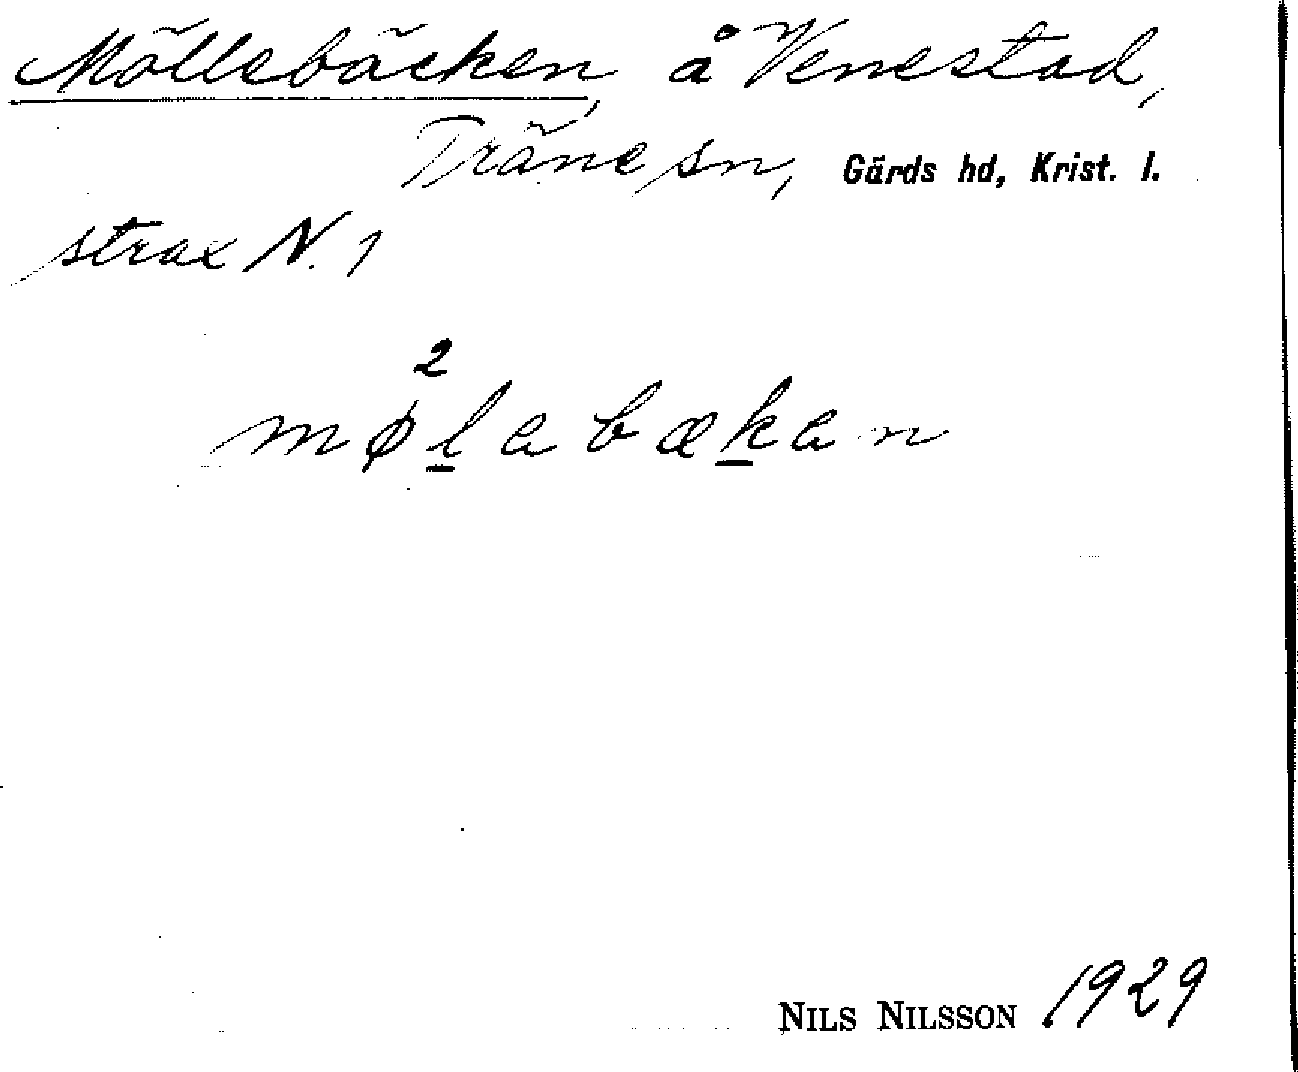 Möllebäcken, å Venestad,
Träne sn, Gärds hd, Krist. l.
strax N. 1
2
mølabækan
NILS NILSSON 1929